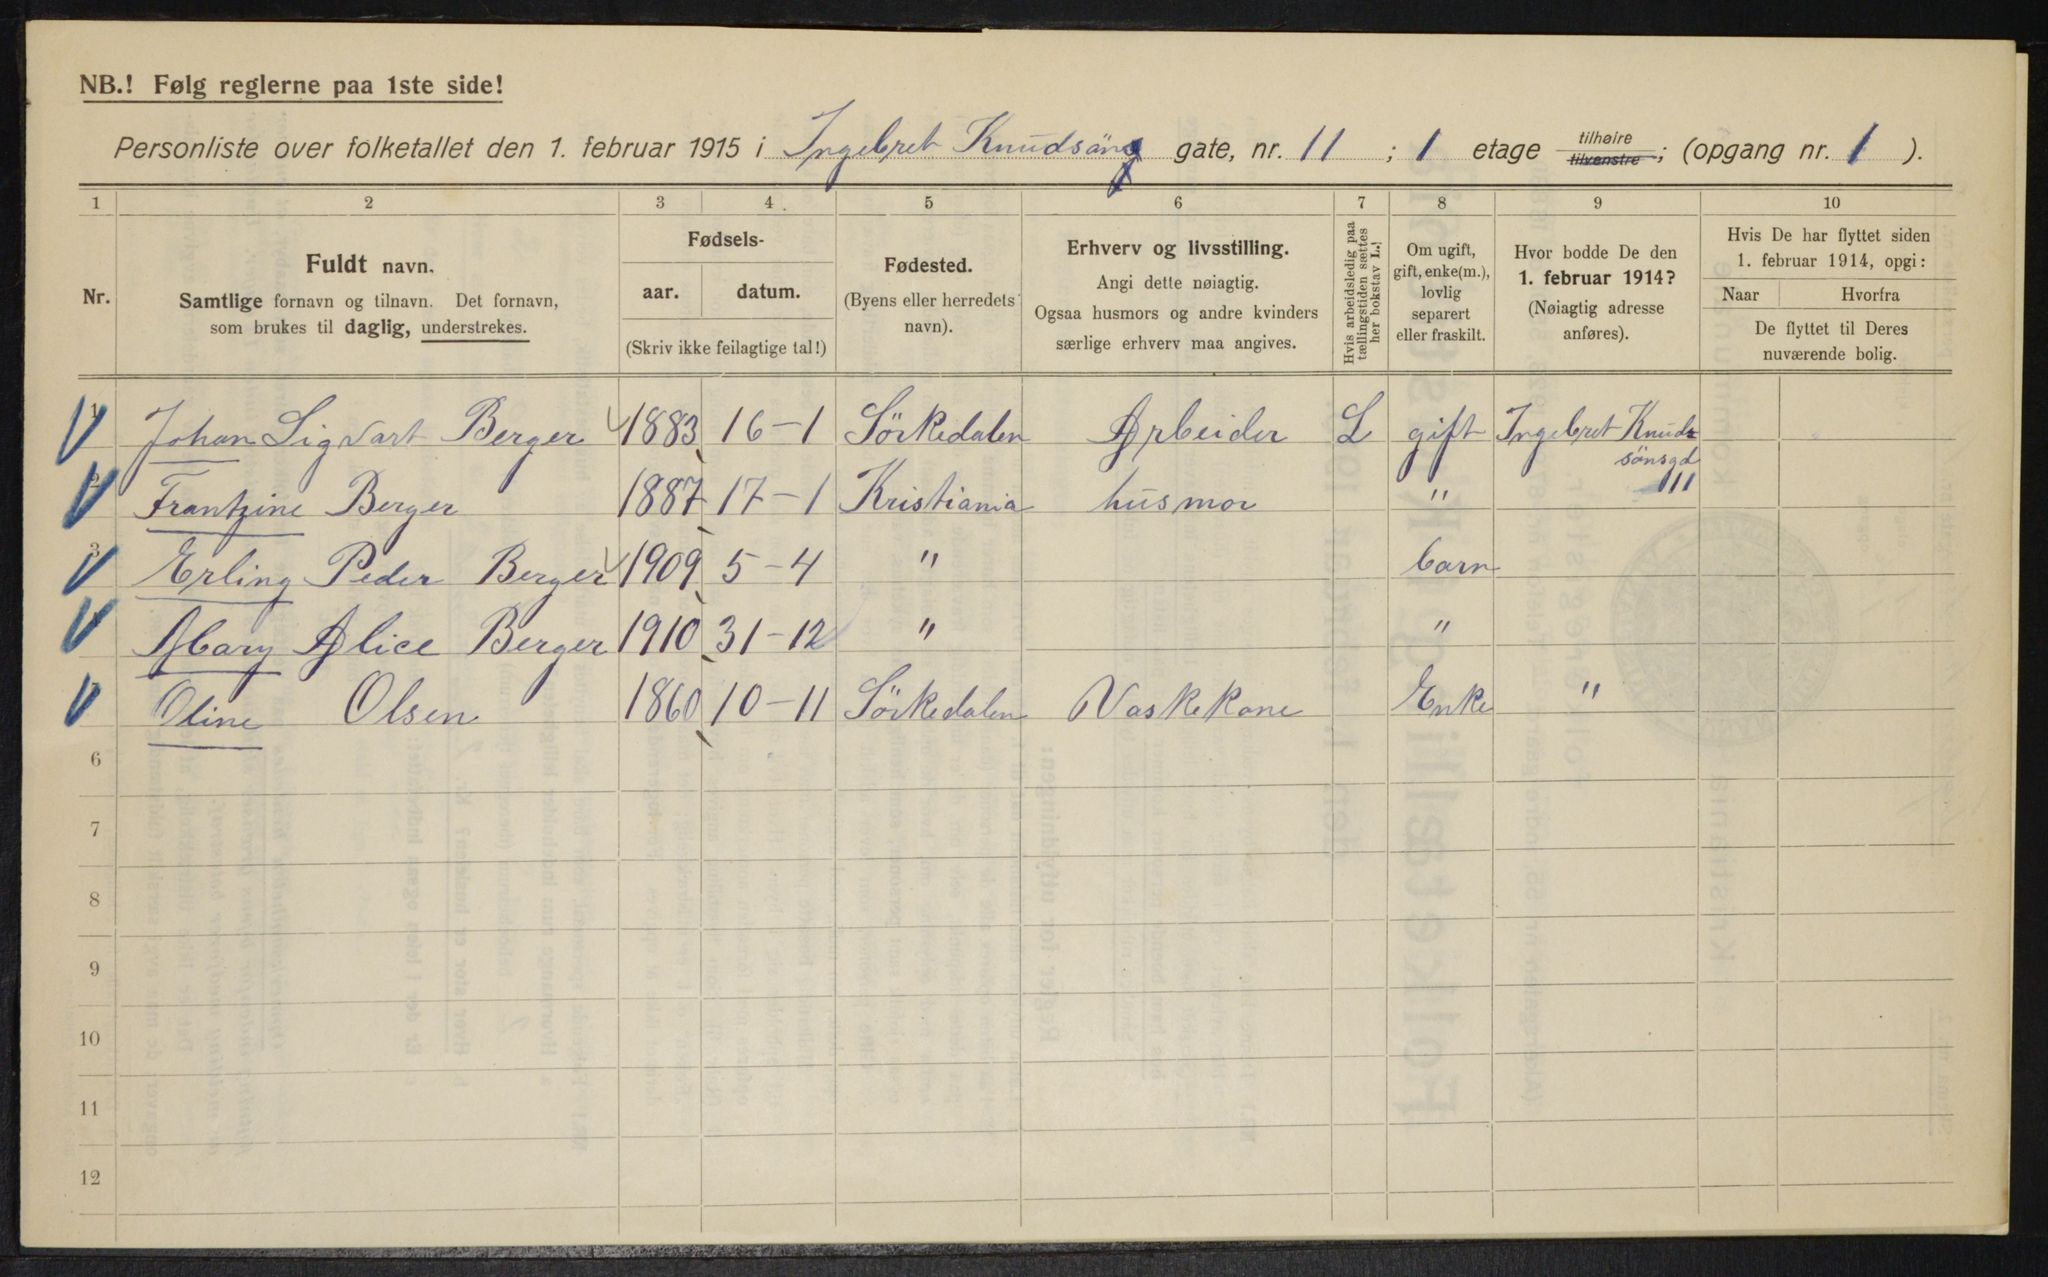 NB.! Følg reglerne paa 1ste side!
Personliste over folketallet den 1. februar 1915 i Ingebret Knudsøns gate, nr. 11 ; 1 etage tilhøire tilvenstre; (opgang nr. 1 ).
1 2 3 4 5 6 7 8 9 10
Nr.
Fuldt navn.
Samtlige fornavn og tilnavn. Det fornavn,
som brukes til daglig, understrekes.
Fødsels-
aar. datum.
(Skriv ikke feilagtige tal!)
Fødested.
(Byens eller herredets
navn).
Erhverv og livsstilling.
Angi dette nøiagtig.
Ogsaa husmors og andre kvinders
særlige erhverv maa angives.
Hvis arbeidsledig paa
tællingstiden sættes
her bokstav L.!
Om ugift,
gift, enke(m.),
lovlig
separert
eller fraskilt.
Hvor bodde De den
1. februar 1914?
(Nøiagtig adresse
anføres).
Hvis De har flyttet siden
1. februar 1914, opgi:
Naar Hvorfra
De flyttet til Deres
nuværende bolig.
1 Johan Sigvart Berger 1883 16-1 Sörkedalen Arbeider L gift Ingebret Knud-
sönsgd
11
2 Frantzine Berger 1887 17-1 Kristiania husmor "
3 Erling Peder Berger 1909 5-4 " barn
4 Mary Alice Berger 1910 31-12 " "
Oline Olsen 1860 10-11 Sörkedalen Vaskekone Enke "
6
7
8
9
10
11
12